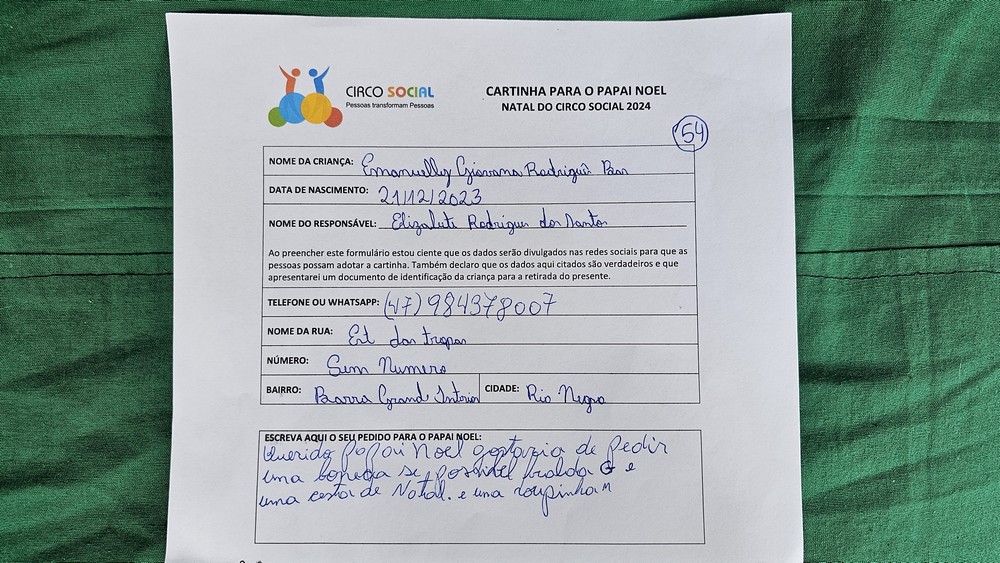 CIRCO SOCIAL
Pessoas transformam Pessoas
CARTINHA PARA O PAPAI NOEL
NATAL DO CIRCO SOCIAL 2024
54
NOME DA CRIANÇA: Emanuelly Giovana Rodrigue
DATA DE NASCIMENTO: 21/12/2023
NOME DO RESPONSÁVEL: Elizabete Rodrigues dos Santos
Ao preencher este formulário estou ciente que os dados serão divulgados nas redes sociais para que as
pessoas possam adotar a cartinha. Também declaro que os dados aqui citados são verdadeiros e que
apresentarei um documento de identificação da criança para a retirada do presente.
TELEFONE OU WHATSAPP: (47) 984378007
NOME DA RUA: Est das tropas
NÚMERO: Sem Numero
BAIRRO: Barra Grand Interior CIDADE: Rio Negro
ESCREVA AQUI O SEU PEDIDO PARA O PAPAI NOEL:
Querido Papai Noel gostaria de Pedir
uma boneca se possivel fralda G e
uma cesta de Natal. e uma roupinha M